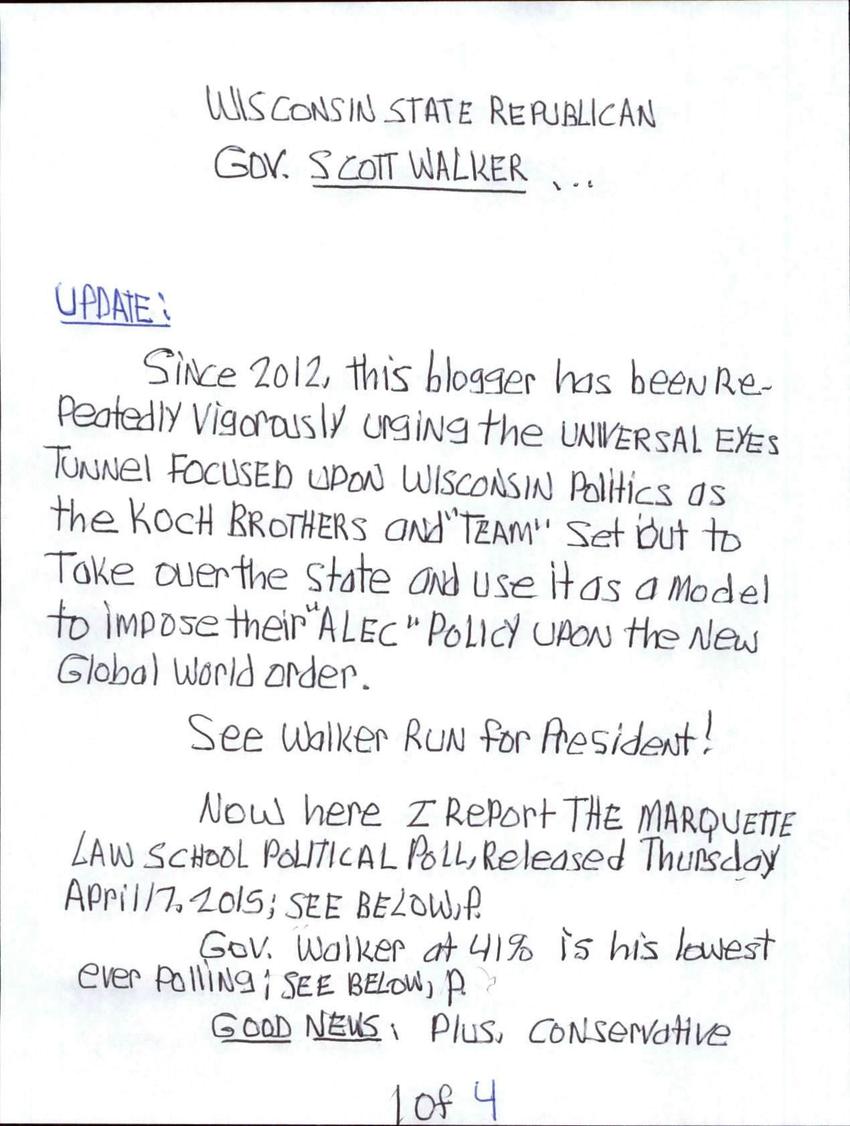 WISCONSIN STATE REPUBLICAN
GOV. SCOTT WALKER ...
UPDATE:
Since 2012, this blogger has been Re-
Peatedly Vigorously urging the UNIVERSAL EYES
TUNNEl FOCUSED UPON WISCONSIN Politics as
the KOCH BROTHERS AND "TEAM" Set out to
Take over the State and use it as a Model
to impose their "ALEC" POLICY UPON the New
Global World order.
See Walker RUN for President!
Now here I RePort THE MARQUETTE
LAW SCHOOL POLITICAL POLL, Released Thursday
April 17, 2015; SEE BELOW, P.
Gov. Walker at 41% is his lowest
ever Polling; SEE BELOW, P.
GOOD NEWS: Plus, CONSERVATIVE
1 of 4